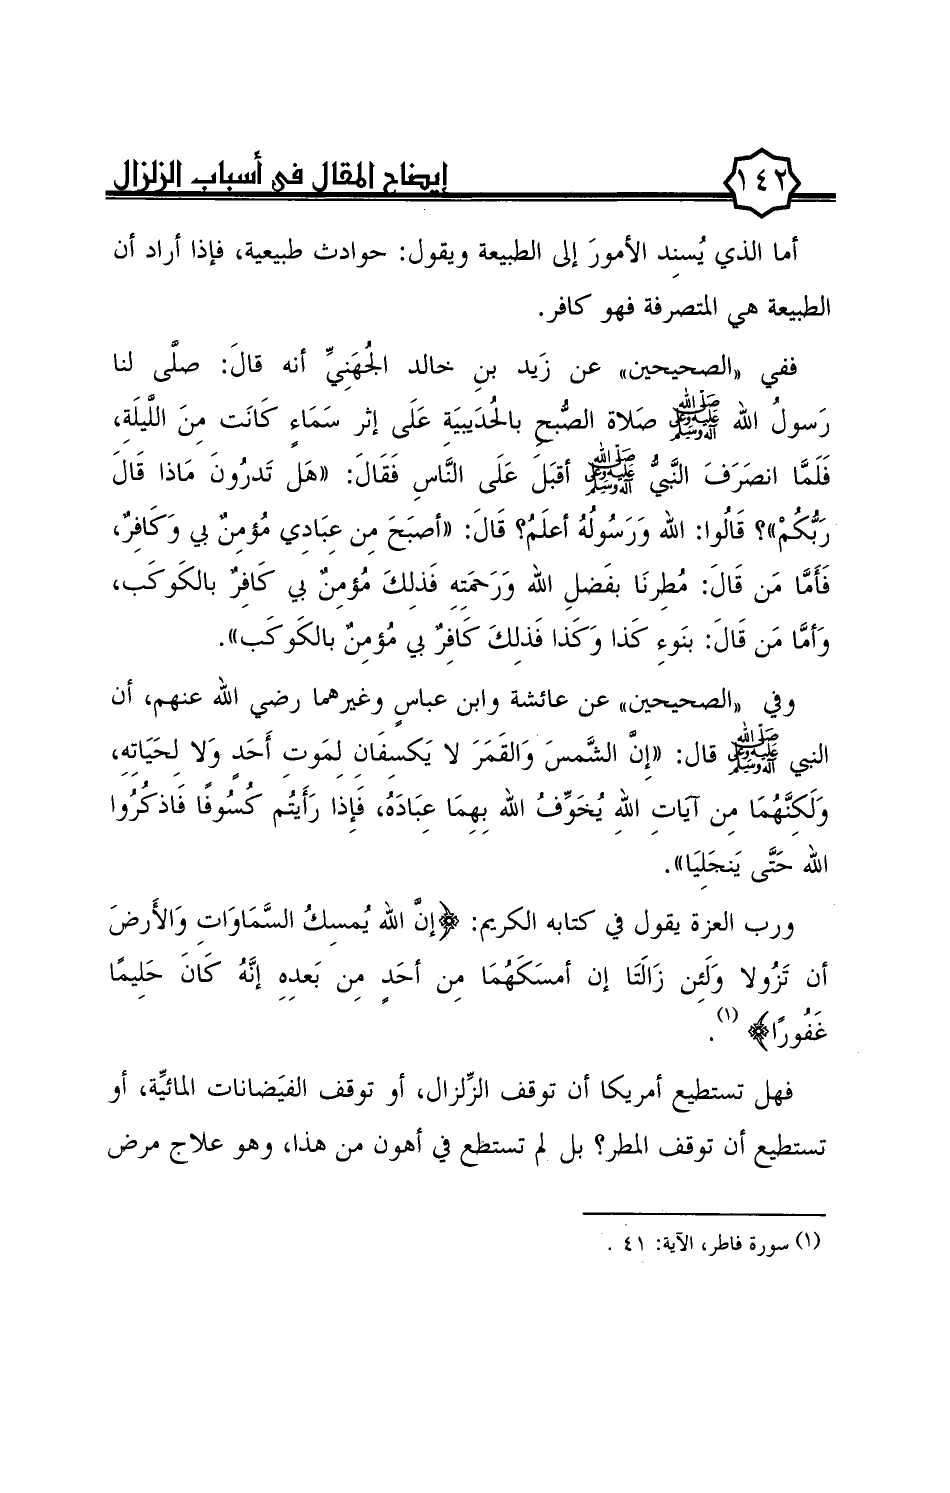 ١٤٢ إيضاح المقال في أسباب الزلزال
أما الذي يُسنِد الأمورَ إلى الطبيعة ويقول: حوادث طبيعية، فإذا أراد أن
الطبيعة هي المتصرفة فهو كافر.
ففي «الصحيحين» عن زَيد بنِ خالد الجُهَنِيِّ أنه قالَ: صلَّى لنا
رَسولُ الله ﷺ صَلاة الصُّبحِ بالحُدَيبِيَةِ عَلَى إثر سَمَاءٍ كَانَت مِنَ اللَّيلَةِ،
فَلَمَّا انصَرَفَ النَّبِيُّ ﷺ أقبَلَ عَلَى النَّاسِ فَقَالَ: «هَل تَدرُونَ مَاذا قَالَ
رَبُّكُمْ»؟ قَالُوا: الله وَرَسُولُهُ أعلَمُ؟ قَالَ: «أصبَحَ مِن عِبَادِي مُؤمِنٌ بِي وَكَافِرٌ،
فَأَمَّا مَن قَالَ: مُطِرنَا بِفَضلِ الله وَرَحمَتِهِ فَذلِكَ مُؤمِنٌ بِي كَافِرٌ بالكَوكَبِ،
وَأمَّا مَن قَالَ: بِنَوءِ كَذا وَكَذا فَذلِكَ كَافِرٌ بِي مُؤمِنٌ بالكَوكَبِ».
وفي «الصحيحين» عن عائشة وابن عباسٍ وغيرهما رضي الله عنهم، أن
النبي ﷺ قال: «إنَّ الشَّمسَ وَالقَمَرَ لا يَكسِفَانِ لِمَوتِ أَحَدٍ وَلا لِحَيَاتِهِ،
وَلَكِنَّهُمَا مِن آيَاتِ اللهِ يُخَوِّفُ الله بِهِمَا عِبَادَهُ، فَإذا رَأَيتُم كُسُوفًا فَاذكُرُوا
الله حَتَّى يَنجَلِيَا».
ورب العزة يقول في كتابه الكريم: ﴿إنَّ الله يُمسِكُ السَّمَاوَاتِ وَالأَرضَ
أن تَزُولا وَلَئِن زَالَتَا إن أمسَكَهُمَا مِن أحَدٍ مِن بَعدِهِ إنَّهُ كَانَ حَلِيمًا
غَفُورًا﴾ (١).
فهل تستطيع أمريكا أن توقف الزِّلزال، أو توقف الفيَضانات المائيِّة، أو
تستطيع أن توقف المطر؟ بل لم تستطع في أهون من هذا، وهو علاج مرض
(١) سورة فاطر، الآية: ٤١ .